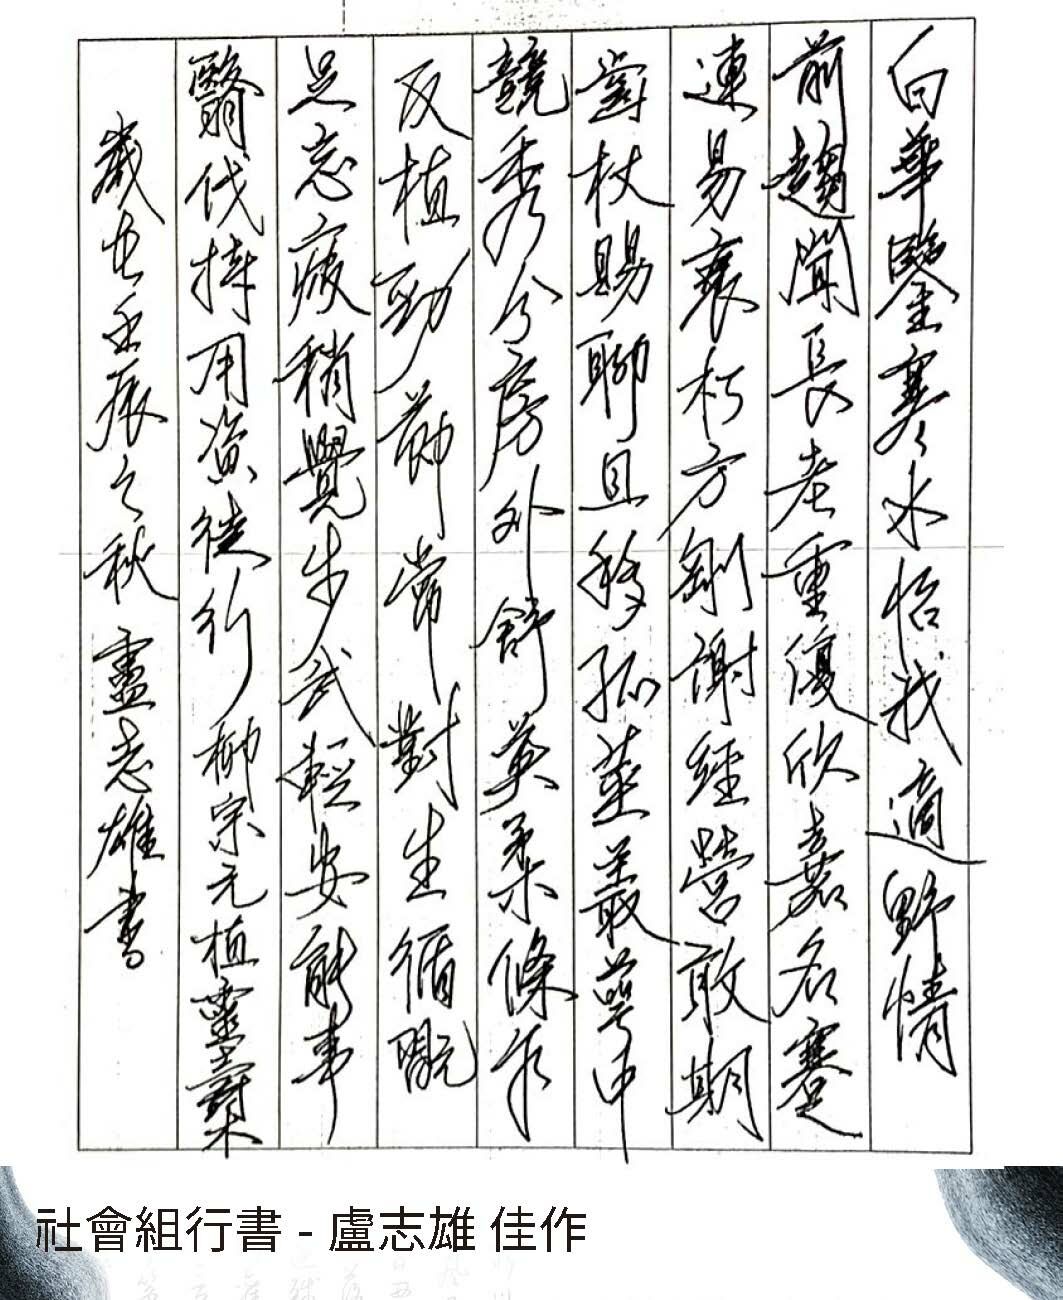 白華鑒寒水怡我適野情
前趨聞長老重復欣嘉名蹇
連易衰朽方剛謝經營敢期
齒杖賜聊且移孤莖叢萼中
競秀分房外舒英柔條乍
反植勁節常對生循翫
足忘疲稍覺步武輕安能事
翦伐持用資徒行柳宗元植靈壽木
歲在壬辰之秋 盧志雄書
社會組行書 - 盧志雄 佳作